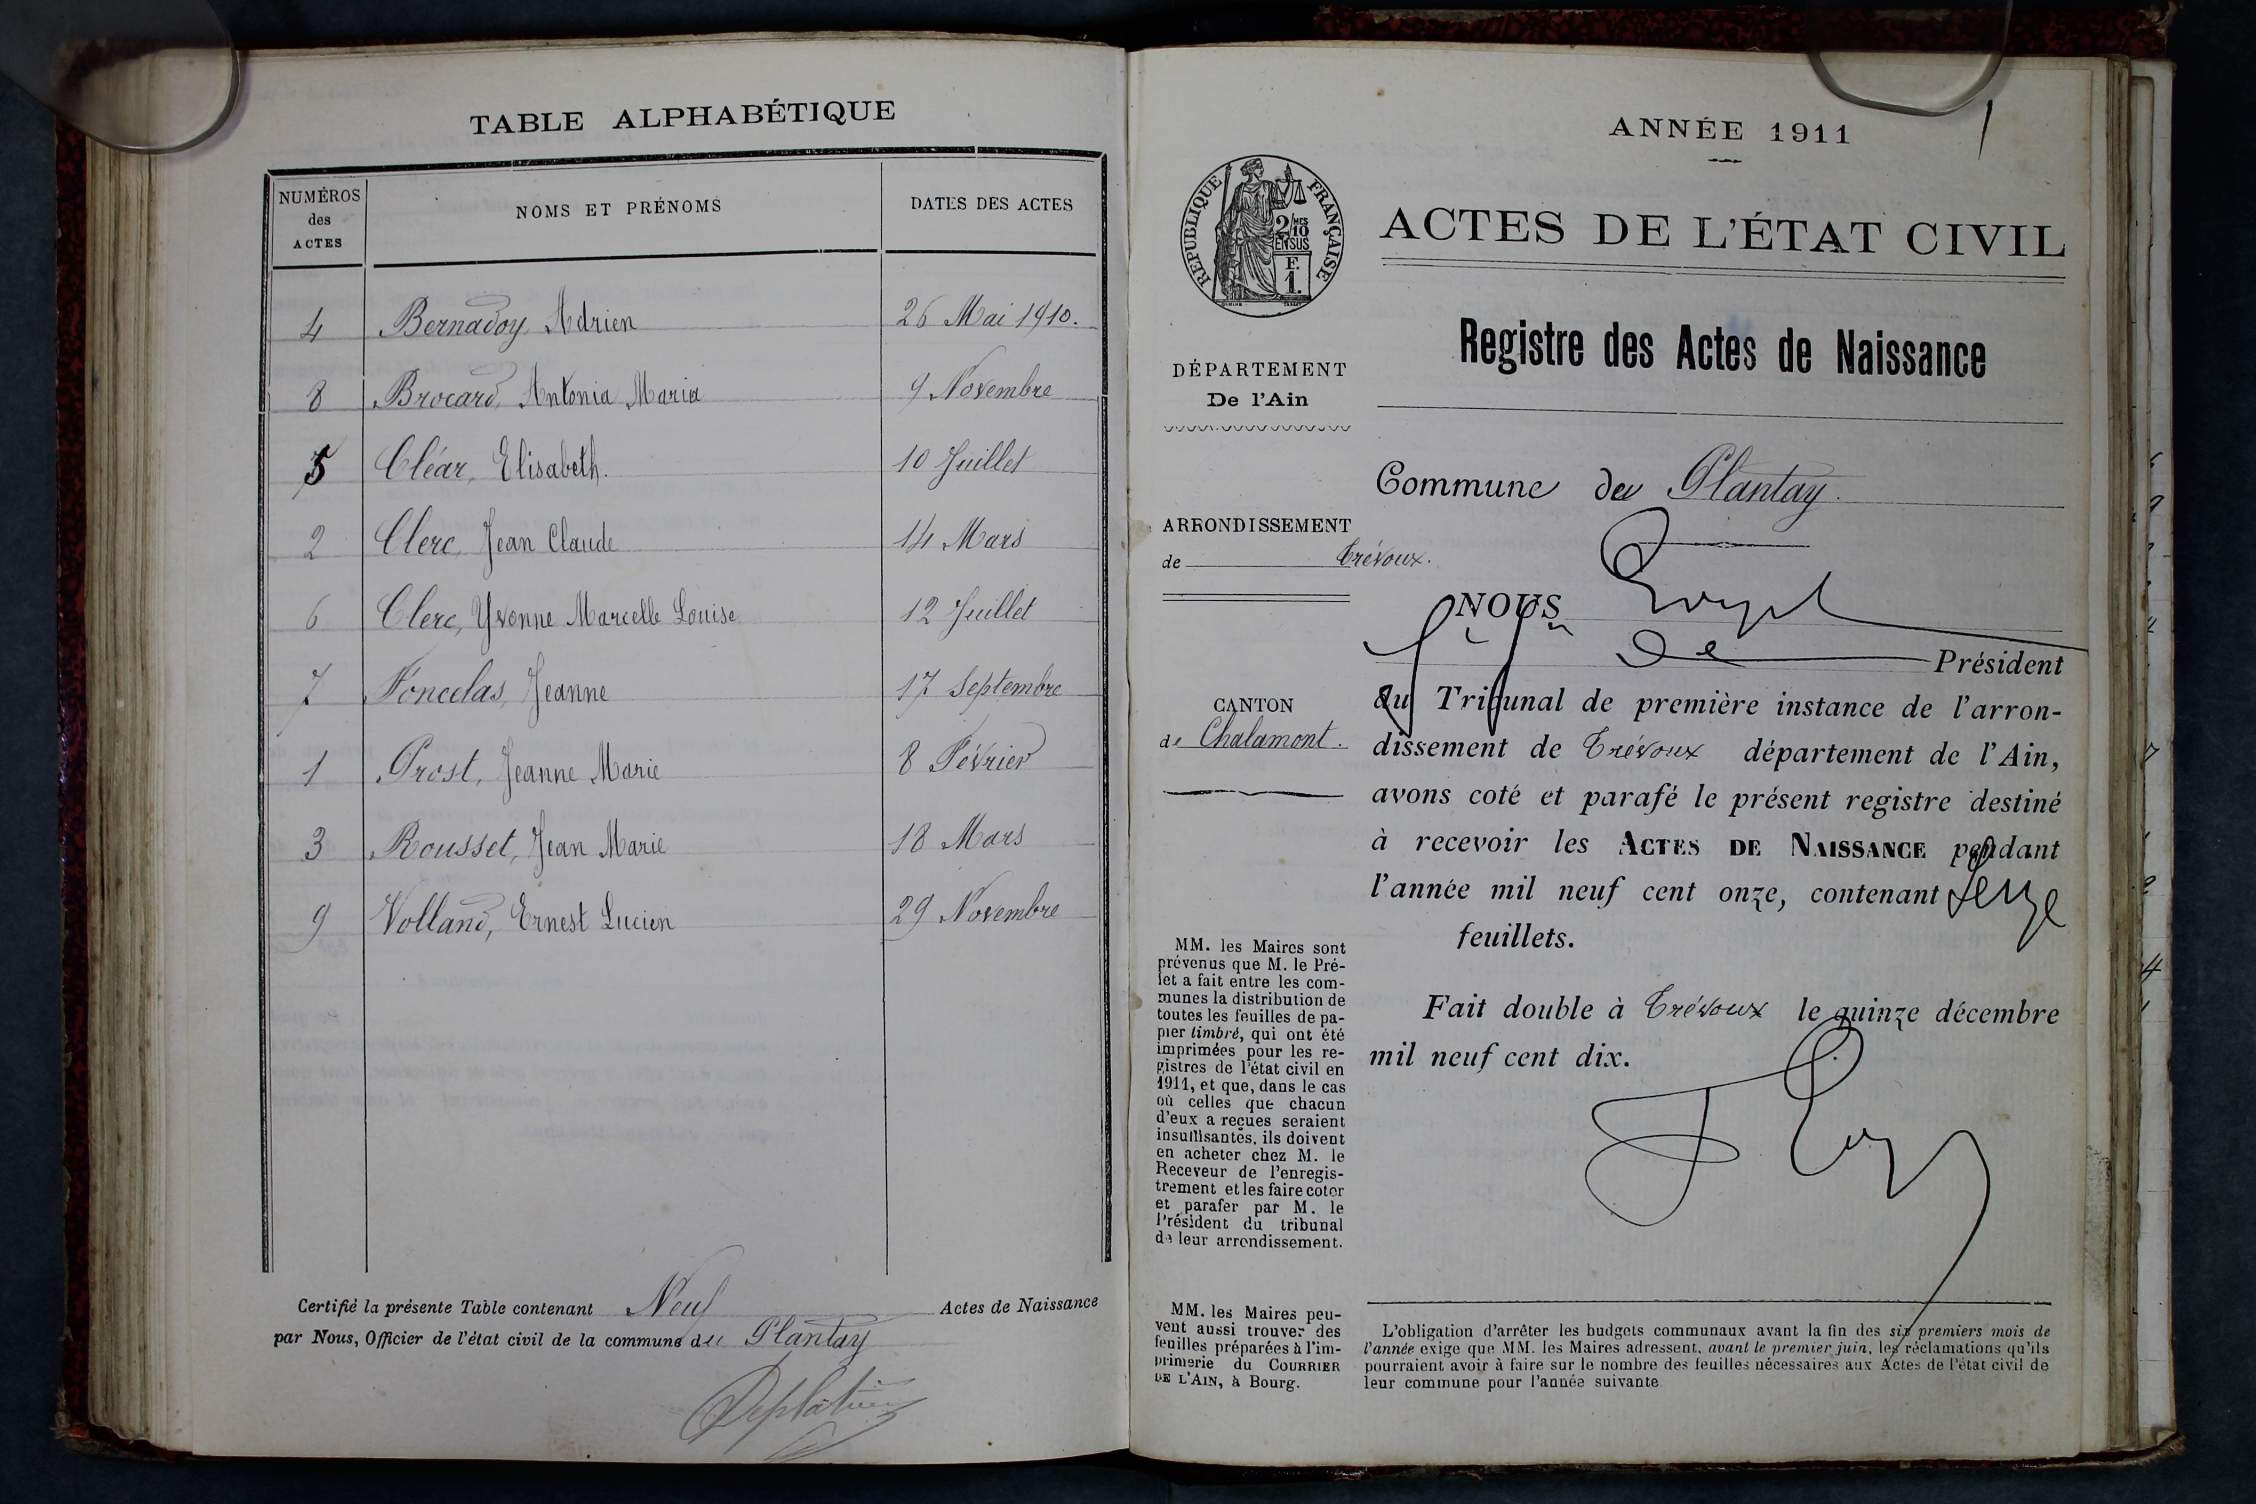 TABLE ALPHABÉTIQUE
NUMÉROS des ACTES
NOMS ET PRÉNOMS
DATES DES ACTES
4 Bernadoy Adrien 26 Mai 1910.
8 Brocard, Antonia Maria 9 Novembre
5 Cléar, Elisabeth. 10 Juillet
2 Clerc, Jean Claude 14 Mars
6 Clerc, Yvonne Marcelle Louise 12 Juillet
7 Foncelas, Jeanne 17 Septembre
1 Prost, Jeanne Marie 8 Février
3 Rousset, Jean Marie 18 Mars
9 Volland, Ernest Lucien 29 Novembre
Certifié la présente Table contenant Neuf Actes de Naissance
par Nous, Officier de l'état civil de la commune du Plantay
1
ANNÉE 1911
RÉPUBLIQUE FRANÇAISE
2/10 MES
EN SUS
F.
1.
DÉPARTEMENT
De l'Ain
ARRONDISSEMENT
de Trévoux.
CANTON
de Chalamont.
MM. les Maires sont
prévenus que M. le Pré-
fet a fait entre les com-
munes la distribution de
toutes les feuilles de pa-
pier timbré, qui ont été
imprimées pour les re-
gistres de l'état civil en
1911, et que, dans le cas
où celles que chacun
d'eux a reçues seraient
insuffisantes, ils doivent
en acheter chez M. le
Receveur de l'enregis-
trement et les faire coter
et parafer par M. le
Président du tribunal
de leur arrondissement.
MM. les Maires peu-
vent aussi trouver des
feuilles préparées à l'im-
primerie du COURRIER
DE L'AIN, à Bourg.
ACTES DE L'ÉTAT CIVIL
Registre des Actes de Naissance
Commune du Plantay.
NOUS
Président
du Tribunal de première instance de l'arron-
dissement de Trévoux département de l'Ain,
avons coté et parafé le présent registre destiné
à recevoir les ACTES DE NAISSANCE pendant
l'année mil neuf cent onze, contenant
feuillets.
Fait double à Trévoux le quinze décembre
mil neuf cent dix.
L'obligation d'arrêter les budgets communaux avant la fin des six premiers mois de
l'année exige que MM. les Maires adressent, avant le premier juin, les réclamations qu'ils
pourraient avoir à faire sur le nombre des feuilles nécessaires aux Actes de l'état civil de
leur commune pour l'année suivante